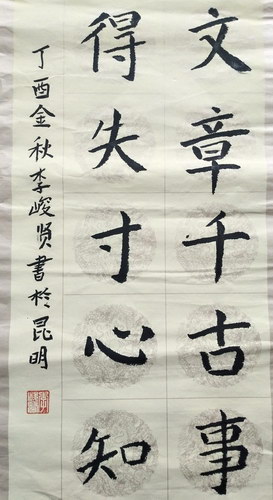 文章千古事
得失寸心知
丁酉金秋李峻贤書於昆明